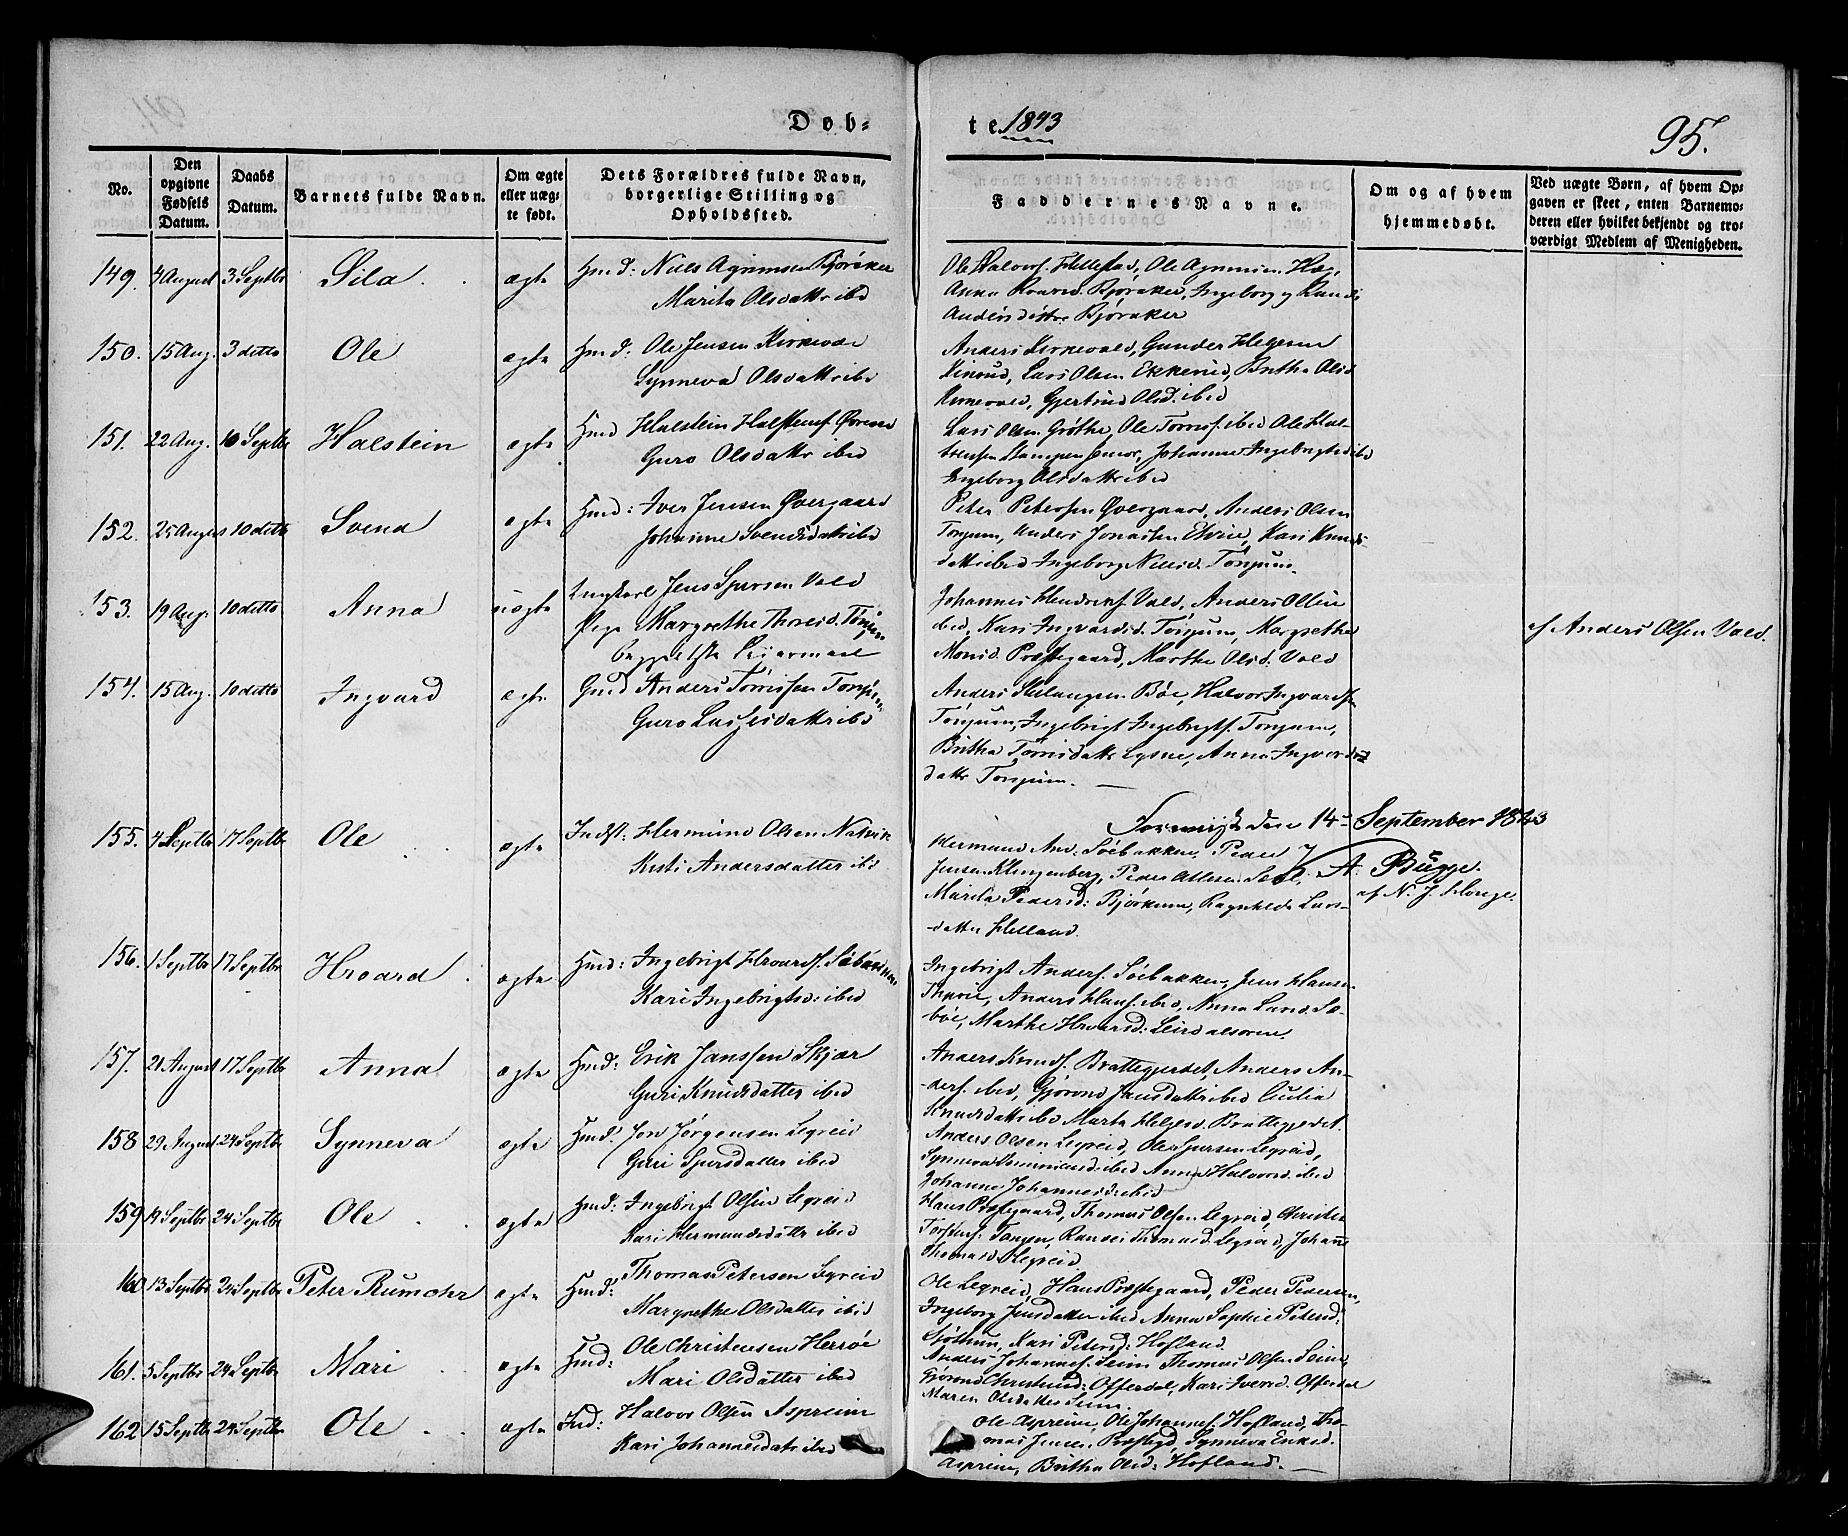 Døb-
te 1843
95.
No.
Den opgivne Fødsels Datum.
Daabs Datum.
Barnets fulde Navn.
Om ægte eller uægte født.
Dets Forældres fulde Navn, borgerlige Stilling og Opholdssted.
Faddernes Navne.
Om og af hvem hjemmedøbt.
Ved uægte Børn, af hvem Opgaven er skeet, enten Barnemoderen eller hvilket bekjendt og troværdigt Medlem af Menigheden.
149. 4 August 3 Septbr Sila. ægte Hmd: Niels Agrimsen Bjøraker
Marita Olsdattr ibid
Ole Halvors. Hellestad, Ole
Anna Bjøraker, Ingeborg og
Andersdøttre Bjøraker
150. 15 Aug. 3 detto Ole ægte Hmd: Ole Jensen
Synneva Olsdattr ibd
Anders Gunder Helgesen
Lars Olsen Ekkerud, Brithe Olsd
Gjertrud Olsd. ibid
151. 22 Aug. 10 Septbr Halstein ægte Hmd Halstein Halstens.
Guro Olsdattr ibid
Lars Olsen Grøthe, Ole ibid Ole
Johanne Ingebrigtsd ibd
Ingeborg Olsdattr ibid
152. 25 August 10 detto Svend ægte Hmd: Iver Jensen Øvergaard
Johanne Svendsdattr ibd
Peter Petersen Øvergaard, Anders Olsen
Tønjum, Anders Jonassen Kari Knuds-
dattr ibd Ingeborg Nielsd. Tønjum.
153. 19 Aug. 10 detto Anna uægte Ungkarl Jens Sjursen Vold
Pige Margrethe Thoresd. Tønjum
begges 1ste Leiermaal
Johannes Hendriks. Vold, Anders Olsen
ibid, Kari Ingvardsd. Tønjum, Margrethe
Monsd. Præstegaard, Marthe Olsd. Vold
af Anders Olsen Vold.
154. 15 Aug. 10 detto Ingvard ægte Gmd Anders Tørrissen Tønjum
Guro Lassesdattr ibd
Anders Bøe, Halvor Ingvards.
Tønjum, Ingebrigt Ingebrigts. Tønjum,
Britha Tørrisdattr Lysne, Anna Ingvards
dattr Tønjum.
den 14de September 1843
A. Bugge.
155. 4 Septbr 17 Septbr Ole ægte Indst: Hermund Olsen Natvik
Kirsti Andersdatter ibd
Hermund And: Søebakken, Peder
Jensen Klingenberg, Peder
Marita Pedersd: Bjørkum, Ragnhilde Lars-
datter Helland.
af N. J. Honge.
156. 1 Septbr 17 Septbr Hroard ægte Hmd: Ingebrigt Hroards.
Kari Ingebrigtsd: ibid
Ingebrigt Anders. Søebakken, Jens Hansen
Anders Hans. ibid, Anna Larsd. Sæ-
bøe, Marthe Hroarsd: Leirdalsøren.
157. 21 August 17 Septbr Anna ægte Hmd: Erik Janssen Skjær
Guri Knudsdatter ibid
Anders Knuds. Brattegjerdet, Anders An-
ders. ibid, Gjørond Jensdattr ibid Cicilia
Knudsdattr ibd Marta Helgesd. Brattegjerdet.
158 29 August 24 Septbr Synneva ægte Hmd: Jon Jørgensen Legreid
Guri Sjursdatter ibid
Anders Olsen Legreid, Ole Sjursen Legreid,
Synneva ibid Anna Halvorsd. ibid
Johanne Johannesd. ibid
159 14 Septbr 24 Septbr Ole ægte Hmd: Ingebrigt Olsen Legreid
Kari Hermundsdattr ibid
Hans Præstegaard, Thomas Olsen Legreid, Christen
Torstens. Tangen, Thomasd. Legreid, Johanne
Thomasd. Legreid
160 13 Septbr 24 Septbr Peter Rumohr ægte Hmd: Thomas Petersen Legreid
Margrethe Olsdatter ibid
Ole Legreid, Hans Præstegaard, Peder Pedersen,
Ingeborg Jensdatter ibid Anna Sophie Petersd:
Kari Petersd: Hofland.
161. 5 Septbr 24 Septbr Mari ægte Hmd: Ole Christensen Herrøe
Mari Olsdatter ibid
Anders Johannes. Seim Thomas Olsen Seim,
Gjørond Christensd: Offerdal, Kari Iversd. Offerdal
Maren Olsdatter Seim.
162 15 Septbr 24 Septbr Ole ægte Ind: Halvor Olsen Aspreim
Kari Johannesdatr ibid
Ole Aspreim, Ole Johannes. Hofland, Tho-
mas Jensen Præstegd, Synneva Eriksd.
Aspreim, Britha Olsd: Hofland.